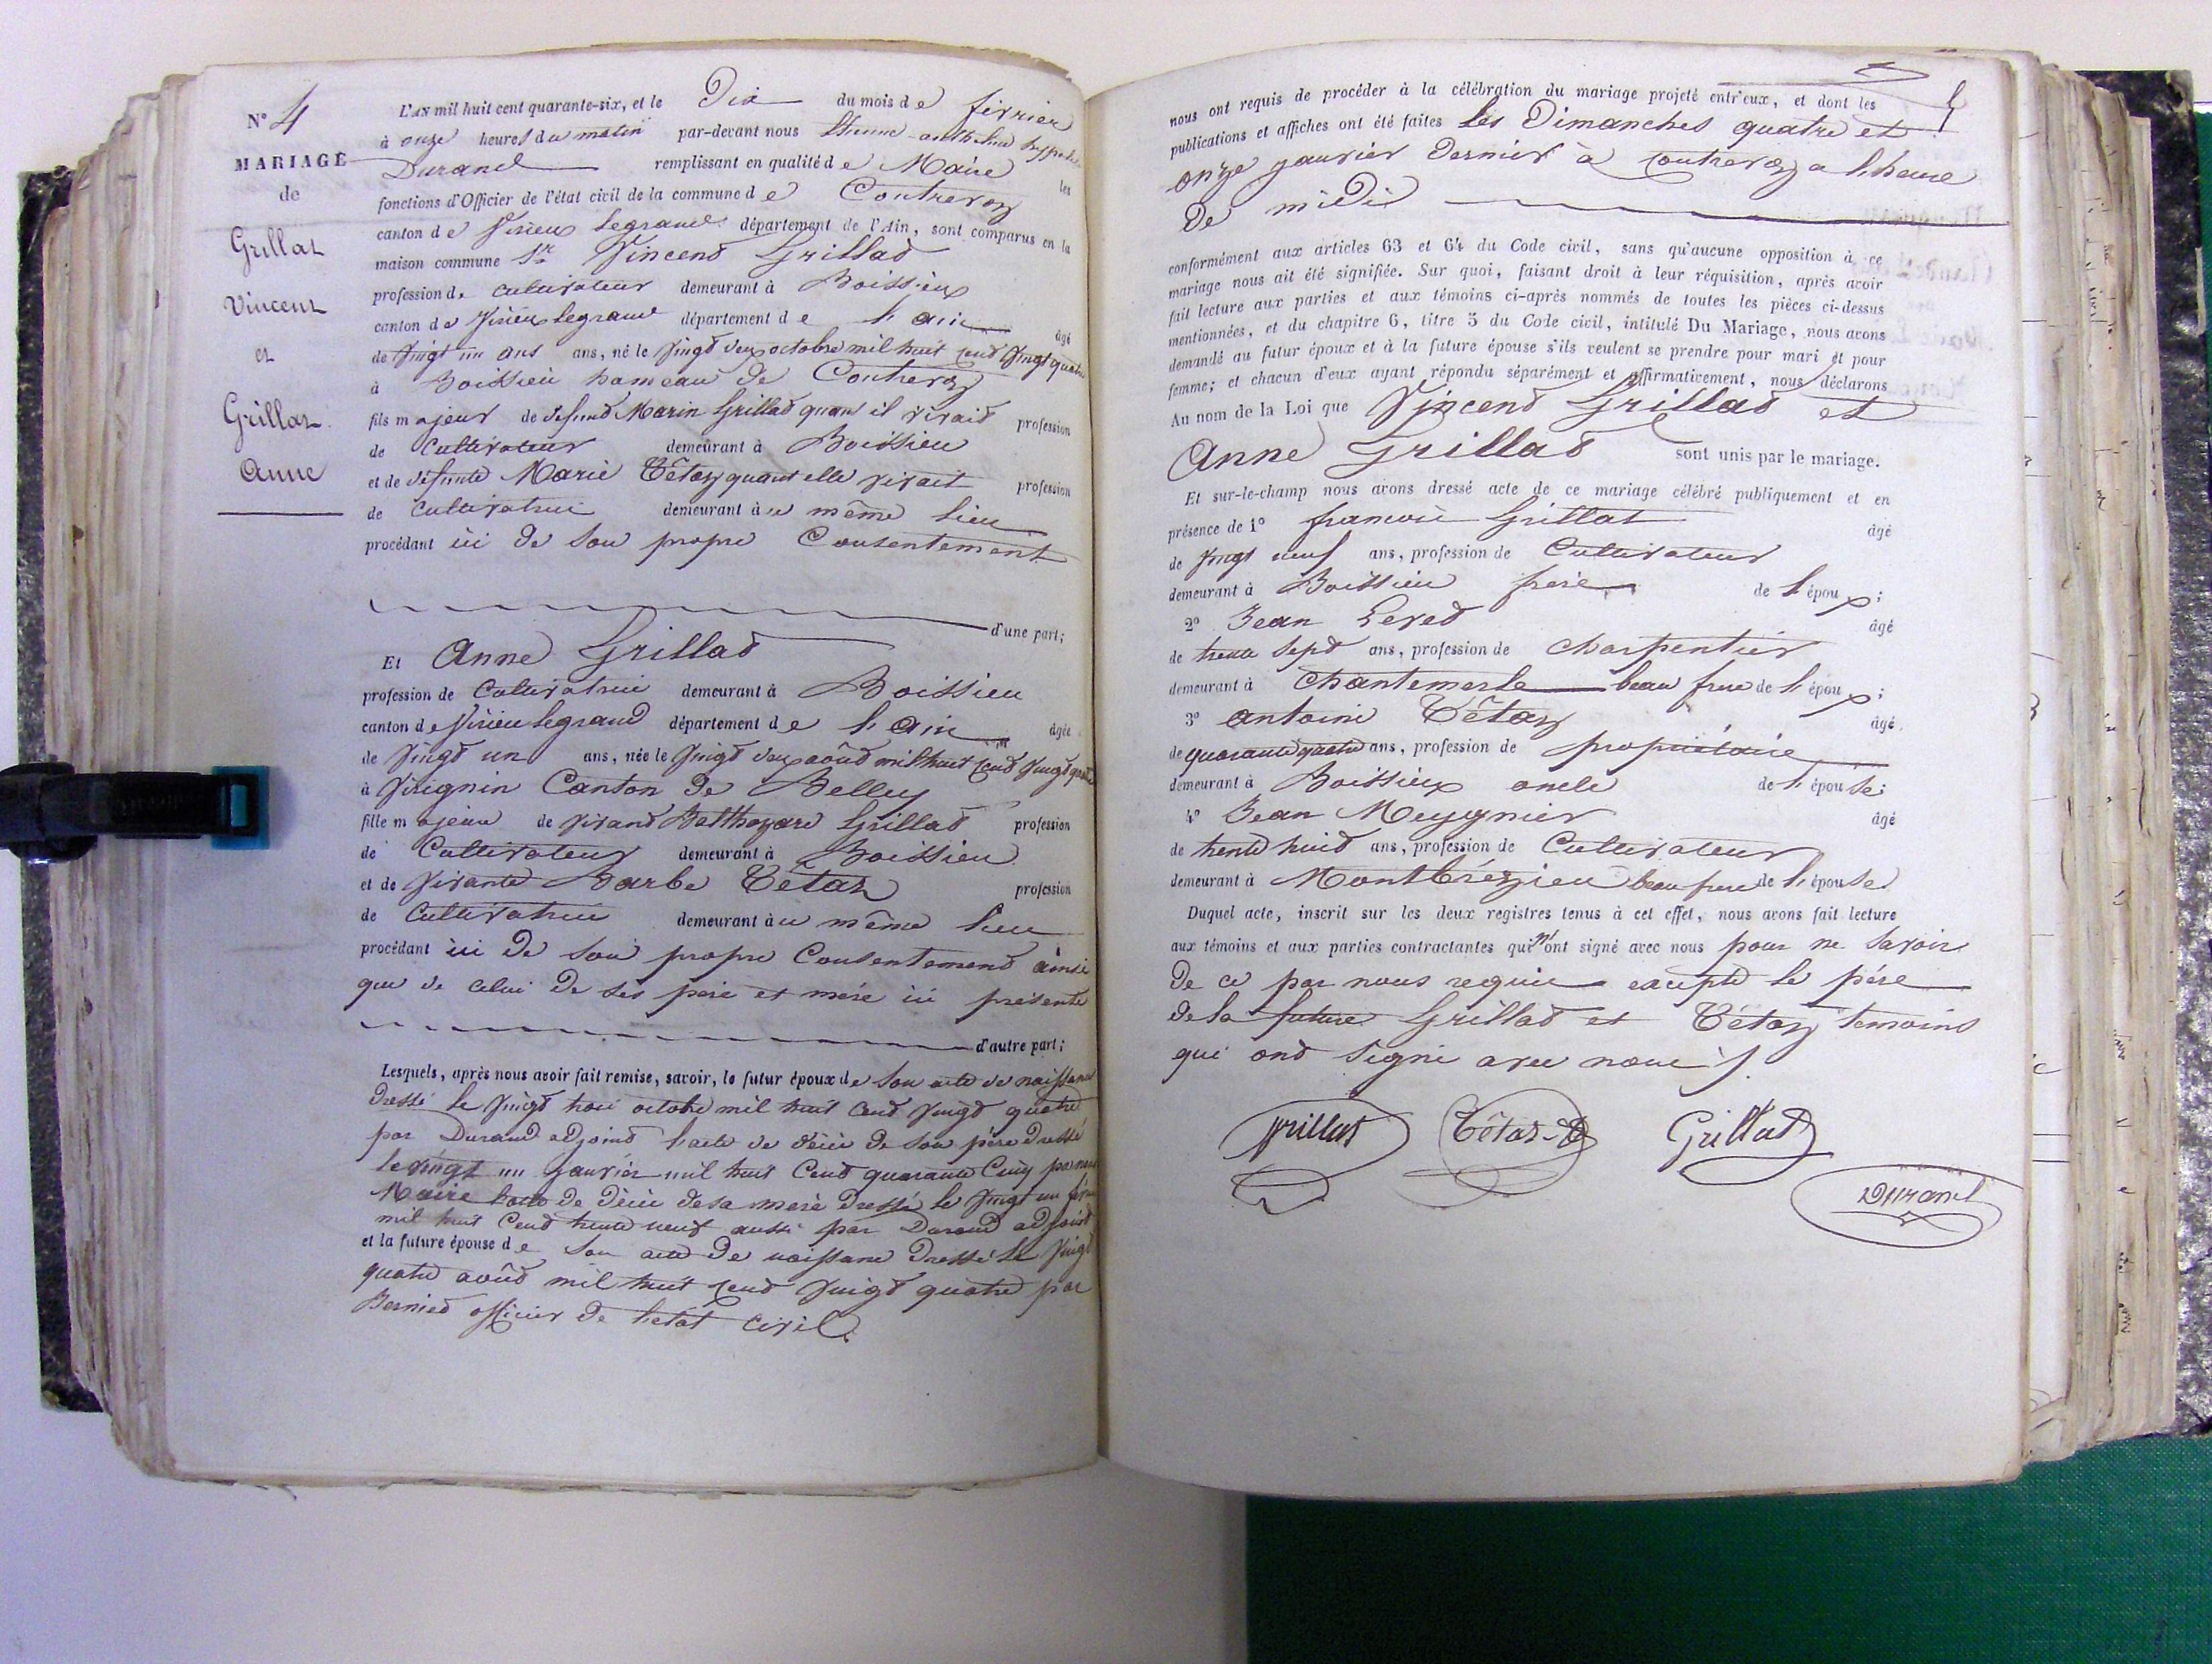 N° 4
MARIAGE
de
Grillat
Vincent
et
Grillat
Anne
L'AN mil huit cent quarante-six, et le Dix du mois de février
à onze heures du matin par-devant nous
Durand remplissant en qualité de Maire les
fonctions d'Officier de l'état civil de la commune de Contrevoz
canton de Virieu legrand département de l'Ain, sont comparus en la
maison commune Sr Vincend Grillad
profession de cultivateur demeurant à Boissieu
canton de Virieu legrand département de l'ain âgé
de Vingt un ans ans, né le Vingd deux octobre mil huit cend Vingt quatre
à Boissieu hameau de Contrevoz
fils majeur de defund Marin Grillad quand il vivaid profession
de Cultivateur demeurant à Boissieu
et de défunte Marie Têtaz quant elle vivait profession
de Cultivatrice demeurant àu même lieu
procédant ici de son propre Consentement
d'une part;
Et Anne Grillad
profession de Cultivatrice demeurant à Boissieu
canton de Virieu legrand département de l'ain âgée
de Vingd un ans, née le Vingd deux aoûd mil huit cend Vingd quatre
à Virignin Canton de Belley
fille majeure de vivand Balthazard Grillad profession
de Cultivateur demeurant à Boissieu
et de Vivante Barbe Têtaz profession
de Cultivatrice demeurant àu même lieu
procédant ici de son propre Consentemend ainsi
que de celui de ses père et mère ici présents
d'autre part;
Lesquels, après nous avoir fait remise, savoir, le futur époux de Son acte de naissance
Dressé le Vingd trois octobre mil huit Cend Vingd quatre
par Durand adjoind l'acte de décès de son père Dressé
le vingt un janvier mil huit Cend quarante Cinq par nous
Maire l'acte de Décès de sa mère Dressé le Vingt un
mil huit Cend trente neuf aussi par Durand adjoint
et la future épouse de Son acte De naissance Dressé le Vingd
quatre aoûd mil huit cend Vingd quatre par
Bernied officier De l'etat Civil.
nous ont requis de procéder à la célébration du mariage projeté entr'eux, et dont les
publications et affiches ont été faites les Dimanches quatre et
onze janvier Dernier à Contrevoz a l'heure
De midi
conformément aux articles 63 et 64 du Code civil, sans qu'aucune opposition à ce
mariage nous ait été signifiée. Sur quoi, faisant droit à leur réquisition, après avoir
fait lecture aux parties et aux témoins ci-après nommés de toutes les pièces ci-dessus
mentionnées, et du chapitre 6, titre 5 du Code civil, intitulé Du Mariage, nous avons
demandé au futur époux et à la future épouse s'ils veulent se prendre pour mari et pour
femme; et chacun d'eux ayant répondu séparément et affirmativement, nous déclarons
Au nom de la Loi que Vincend Grillad et
Anne Grillad sont unis par le mariage.
Et sur-le-champ nous avons dressé acte de ce mariage célébré publiquement et en
présence de 1° francois Grillat âgé
de Vingt neuf ans, profession de Cultivateur
demeurant à Boissieu frère de l'époux;
2° Jean Leved âgé
de trente sept ans, profession de Charpentier
demeurant à Chantemerle beau frere de l'époux;
3° antoine Têtaz âgé
de quarante quatre ans, profession de propriétaire
demeurant à Boissieu oncle de l'épouse;
4° Jean Meygnier âgé
de trente huid ans, profession de Cultivateur
demeurant à Montbrézieu beau frere de l'épouse.
Duquel acte, inscrit sur les deux registres tenus à cet effet, nous avons fait lecture
aux témoins et aux parties contractantes qui n'ont signé avec nous pour ne savoir
De ce par nous requis excepté le père
de la future Grillad et Têtaz temoins
qui ond signé avec nous
Grillat Têtaz Grillat
Durand